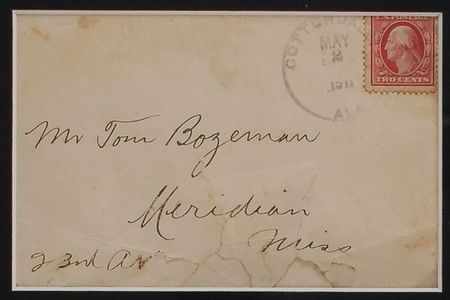 COTTONDA
MAY
2
1911
ALA
TWO CENTS
Mr Tom Bozeman
Meridian
Miss
23rd Av